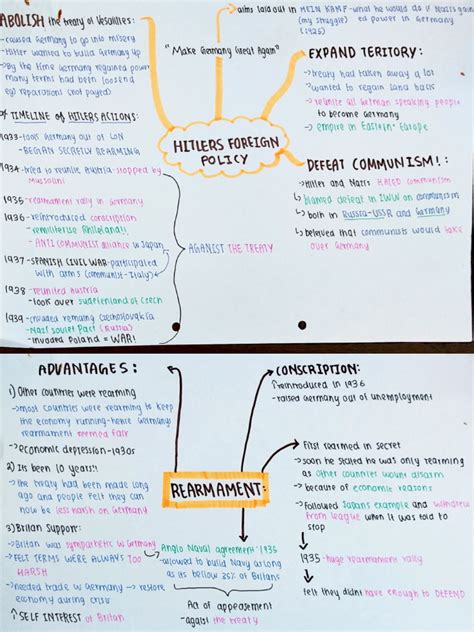 ABOLISH the treaty of Vesailles:
-caused Germany to go into misery
-Hitler wanted to build Germany up
→By the time Germany regained power
many terms had been loosend
eg) reparations (not payed)
aims laid out in MEIN KAMF -what he would do if Nazis gain
(my struggle) ed power in Germany
(1925)
"Make Germany Great Again"
EXPAND TERITORY:
→treaty had taken away a lot
→wanted to regain land back
→reunite all German speaking people
to become germany
→ empire in Eastern Europe
HITLERS FOREIGN
POLICY
TIMELINE of HITLERS ACTIONS:
1933-took Germany out of LON
-BEGIAN SECRETLY REARMING
1934-tried to reunite Austria-stopped by
Mussolini
1935- rearmament rally in Germany
1936 - reintroduced conscription
- remilitarise Rhineland!!
- ANTI COMMUNIST alliance w Japan
1937-SPANISH CIVIL WAR-participated
with arms (communist-Italy)
1938 -reunited Austria
-took over sudetenland of Czech
1939 -invaded remaing Czechoslovakia
- Nazi Soviet Pact (Russia)
- Invaded Poland = WAR!
AGANIST THE TREATY
DEFEAT COMMUNISM!:
→Hitler and Nazi's HATED communism
↳ blamed defeat in 1WW on communism
↳ both in Russia-USSR and Germany
↳ believed that communists would take
over Germany
ADVANTAGES:
1) Other countries were rearming
→most countries were rearming to keep
the economy running-hence Germanys
rearmament seemed fair
→economic depression-1930s
2) Its been 10 years!!
→ the treaty had been made long
ago and people felt they can
now be less harsh on Germany
3) Britan Support:
→Britan was sympathetic w Germany
→FELT TERMS WERE ALWAYS TOO
HARSH
→needed trade w Germany → restore
economy during crisis
↑ SELF INTEREST of Britan
REARMAMENT:
Anglo Naval agreement-1935
→allowed to build Navy as long
as its bellow 35% of Britans
Act of appeasement
-agaist the treaty
CONSCRIPTION:
reintroduced in 1936
-raised Germany out of unemployment
First rearmed in secret
→soon he stated he was only rearming
as other countries wount disarm
→ because of economic reasons
→ followed Japans example and withdrew
from league when it was told to
stop
1935 -huge rearmament rally
felt they didnt have enough to DEFEND